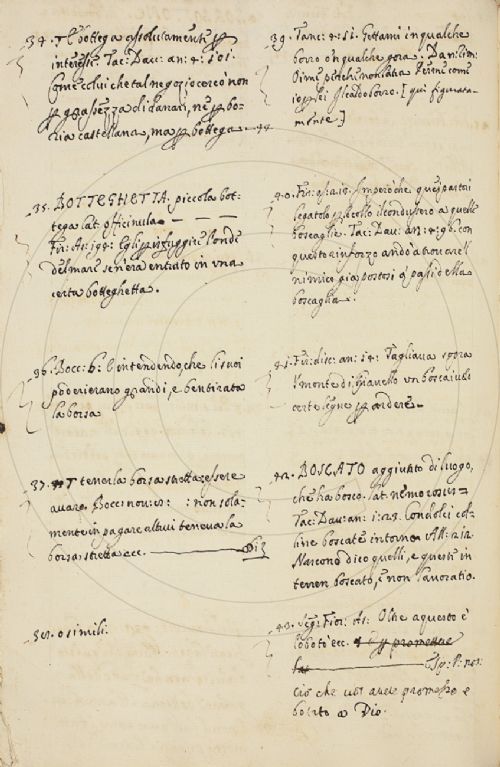 34. T E bottega assolutamente p
interesse. Tac: Dav: an: 4: 101.
Come colui che tal negozio cercò non
p grassezza di danari, ne p bo-
ria castellana, ma p bottega.
35. BOTTEGHETTA. piccola bot-
tega. lat. officinula.
Fir: As: 194: Egli p isfuggir l'onde
del mare se n'era entrato in una
certa botteghetta.
36. Bocc: b: l'intendendo, che li suoi
poderi erano grandi, e ben tirata
la borsa
37. T tener la borsa stretta essere
avaro. Bocc: nov: : non sola-
mente in pagare altrui teneva la
borsa stretta ecc.
38. o simili.
39. Tanc: 4: 11. Gettami in qualche
borro o in qualche gora.
[qui figurata-
mente]
40. Fir: As: Imperò che quei pastori
legatolo p il collo il condussero a quelle
boscaglie. Tac: Dav: an: 4: 96. con
questo rinforzo andò a trovare il
nimico già postosi a' passi della
boscaglia.
41. Fir: disc: an: 14: Tagliava sopra
'l monte di Giavello un boscaiuolo
certe legne p ardere.
42. BOSCATO aggiunto di luogo,
che ha bosco. lat. nemorosus.
Tac: Dav: an: 1: 23. Condolci col-
line boscate intorno. All: 212
Nascono dico quelli, e questi in
terren boscato, e non lavorato.
43. Seg: Fior: As: Oltre a questo è
lo boto ecc. e p promettere
ciò che un avea promesso e
botato a Dio.